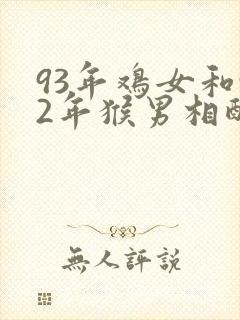 93年鸡女和
2年猴男相
無人評説